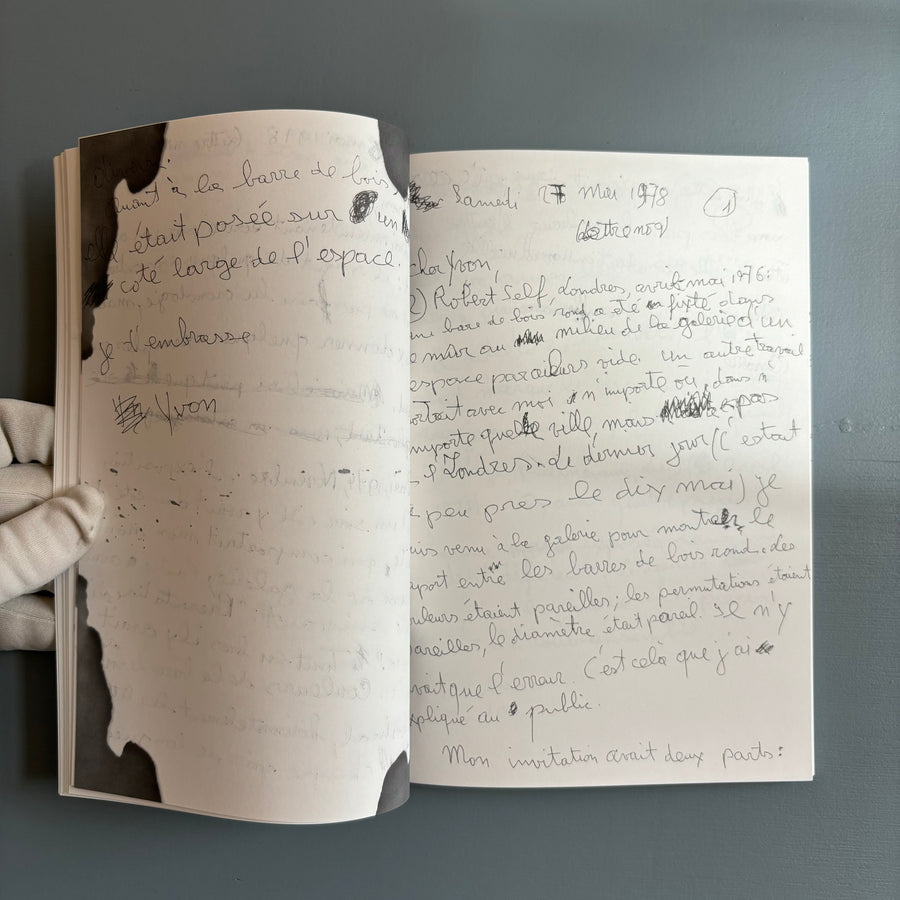 quant à la barre de bois,
elle était posée sur un
coté large de l'espace.
je t'embrasse
Yvon
Samedi 27 Mai 1978
1
cher Yvon,
2) Robert Self, Londres, avril mai 1976:
une barre de bois rond a été fixté dans
le mur au milieu de la galerie d'un
espace par ailleurs vide. un autre travail
avec moi n'importe où, dans n'
importe quelle ville, mais pas
à Londres. Le dernier jour (c'était
à peu pres le dix mai) je
suis venu à la galerie pour montrer le
rapport entre les barres de bois rond. les
couleurs étaient pareilles; les permutations étaient
pareilles, le diamètre était pareil. il n'y
avait que l'erreur. C'est celà que j'ai
expliqué au public.
Mon invitation avait deux parts: